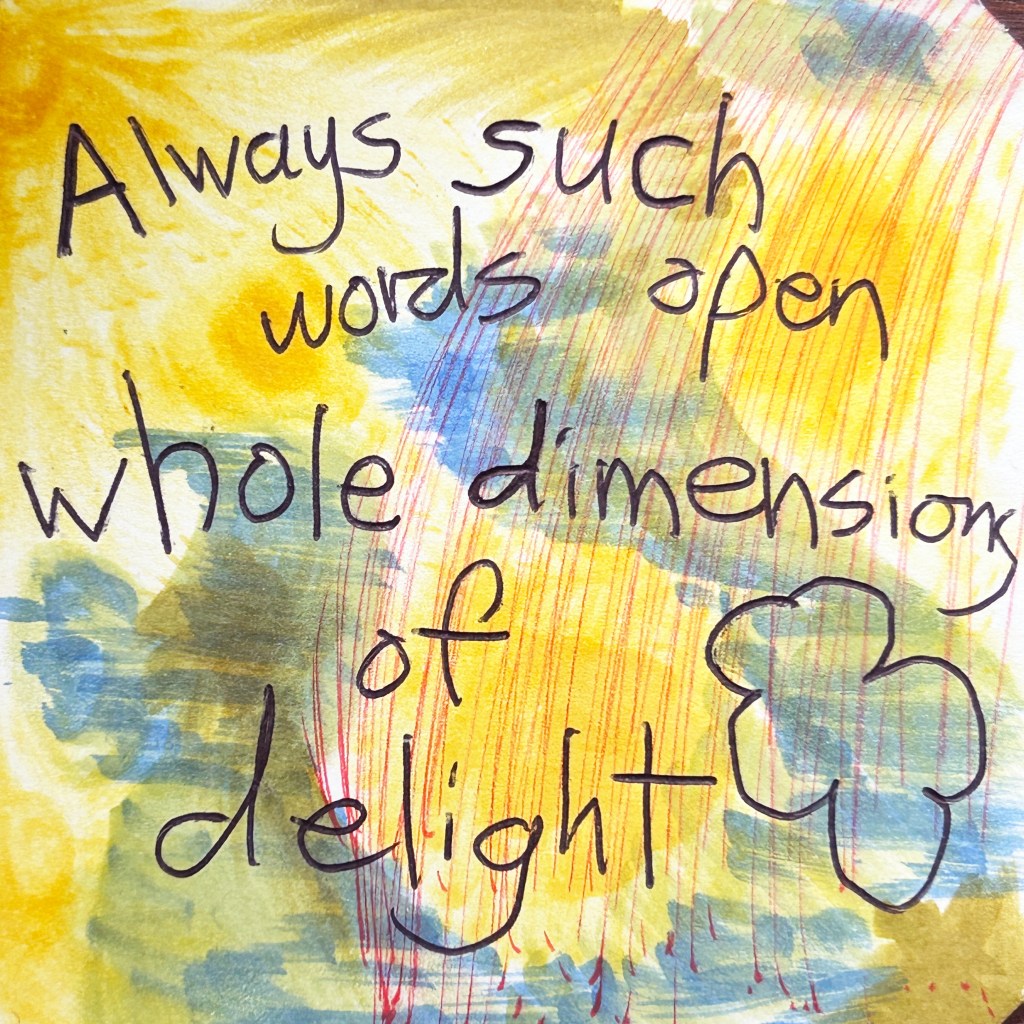 Always such
words open
whole dimensions
of
delight